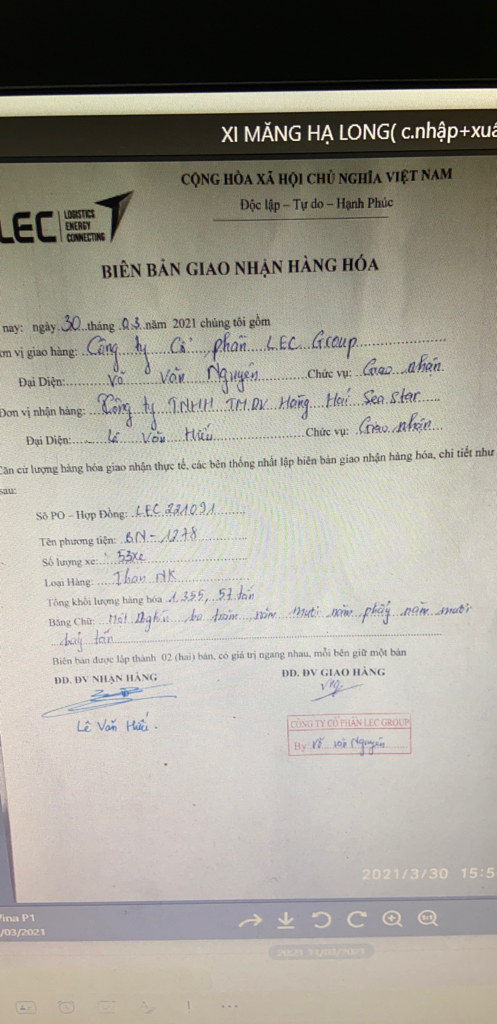 XI MĂNG HẠ LONG( c.nhập+xuấ
CỘNG HÒA XÃ HỘI CHỦ NGHĨA VIỆT NAM
Độc lập – Tự do – Hạnh Phúc
LEC LOGISTICS ENERGY CONNECTING
BIÊN BẢN GIAO NHẬN HÀNG HÓA
nay: ngày 30 tháng 03 năm 2021 chúng tôi gồm
ơn vị giao hàng: Công ty Cổ phần LEC Group
Đại Diện: Võ Văn Nguyên Chức vụ: Giao nhận
Đơn vị nhận hàng: Công ty TNHH TM.DV Hàng Hải Sea star
Đại Diện: Lê Văn Hiếu Chức vụ: Giao nhận
Căn cứ lượng hàng hóa giao nhận thực tế, các bên thống nhất lập biên bản giao nhận hàng hóa, chi tiết như
sau:
Số PO – Hợp Đồng: LEC 221091
Tên phương tiện: BN - 1278
Số lượng xe: 53xe
Loại Hàng: Than NK
Tổng khối lượng hàng hóa 1.355, 57 tấn
Bằng Chữ: Một nghìn ba trăm năm mươi năm phẩy năm mươi
bảy tấn
Biên bản được lập thành 02 (hai) bản, có giá trị ngang nhau, mỗi bên giữ một bản
ĐD. ĐV NHẬN HÀNG ĐD. ĐV GIAO HÀNG
Lê Văn Hiếu.
CÔNG TY CỔ PHẦN LEC GROUP
By: Võ văn Nguyên
2021/3/30 15:5
Vina P1
/03/2021
20:21 31/03/2021